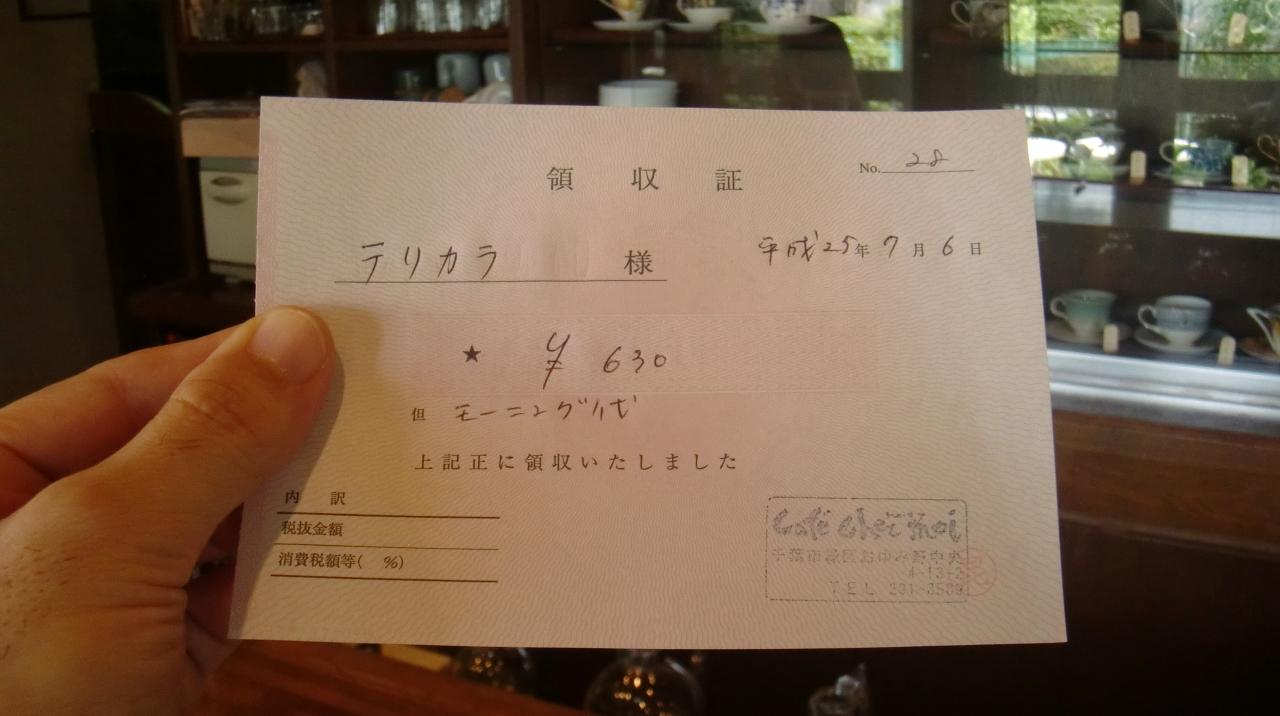 領収証
No. 28
テリカラ 様
平成25年7月6日
★ ¥630
但 モーニング代
上記正に領収いたしました
内訳
税抜金額
消費税額等( %)
Café Chez Moi
千葉市緑区おゆみ野中央
4-13-2
TEL 291-3589